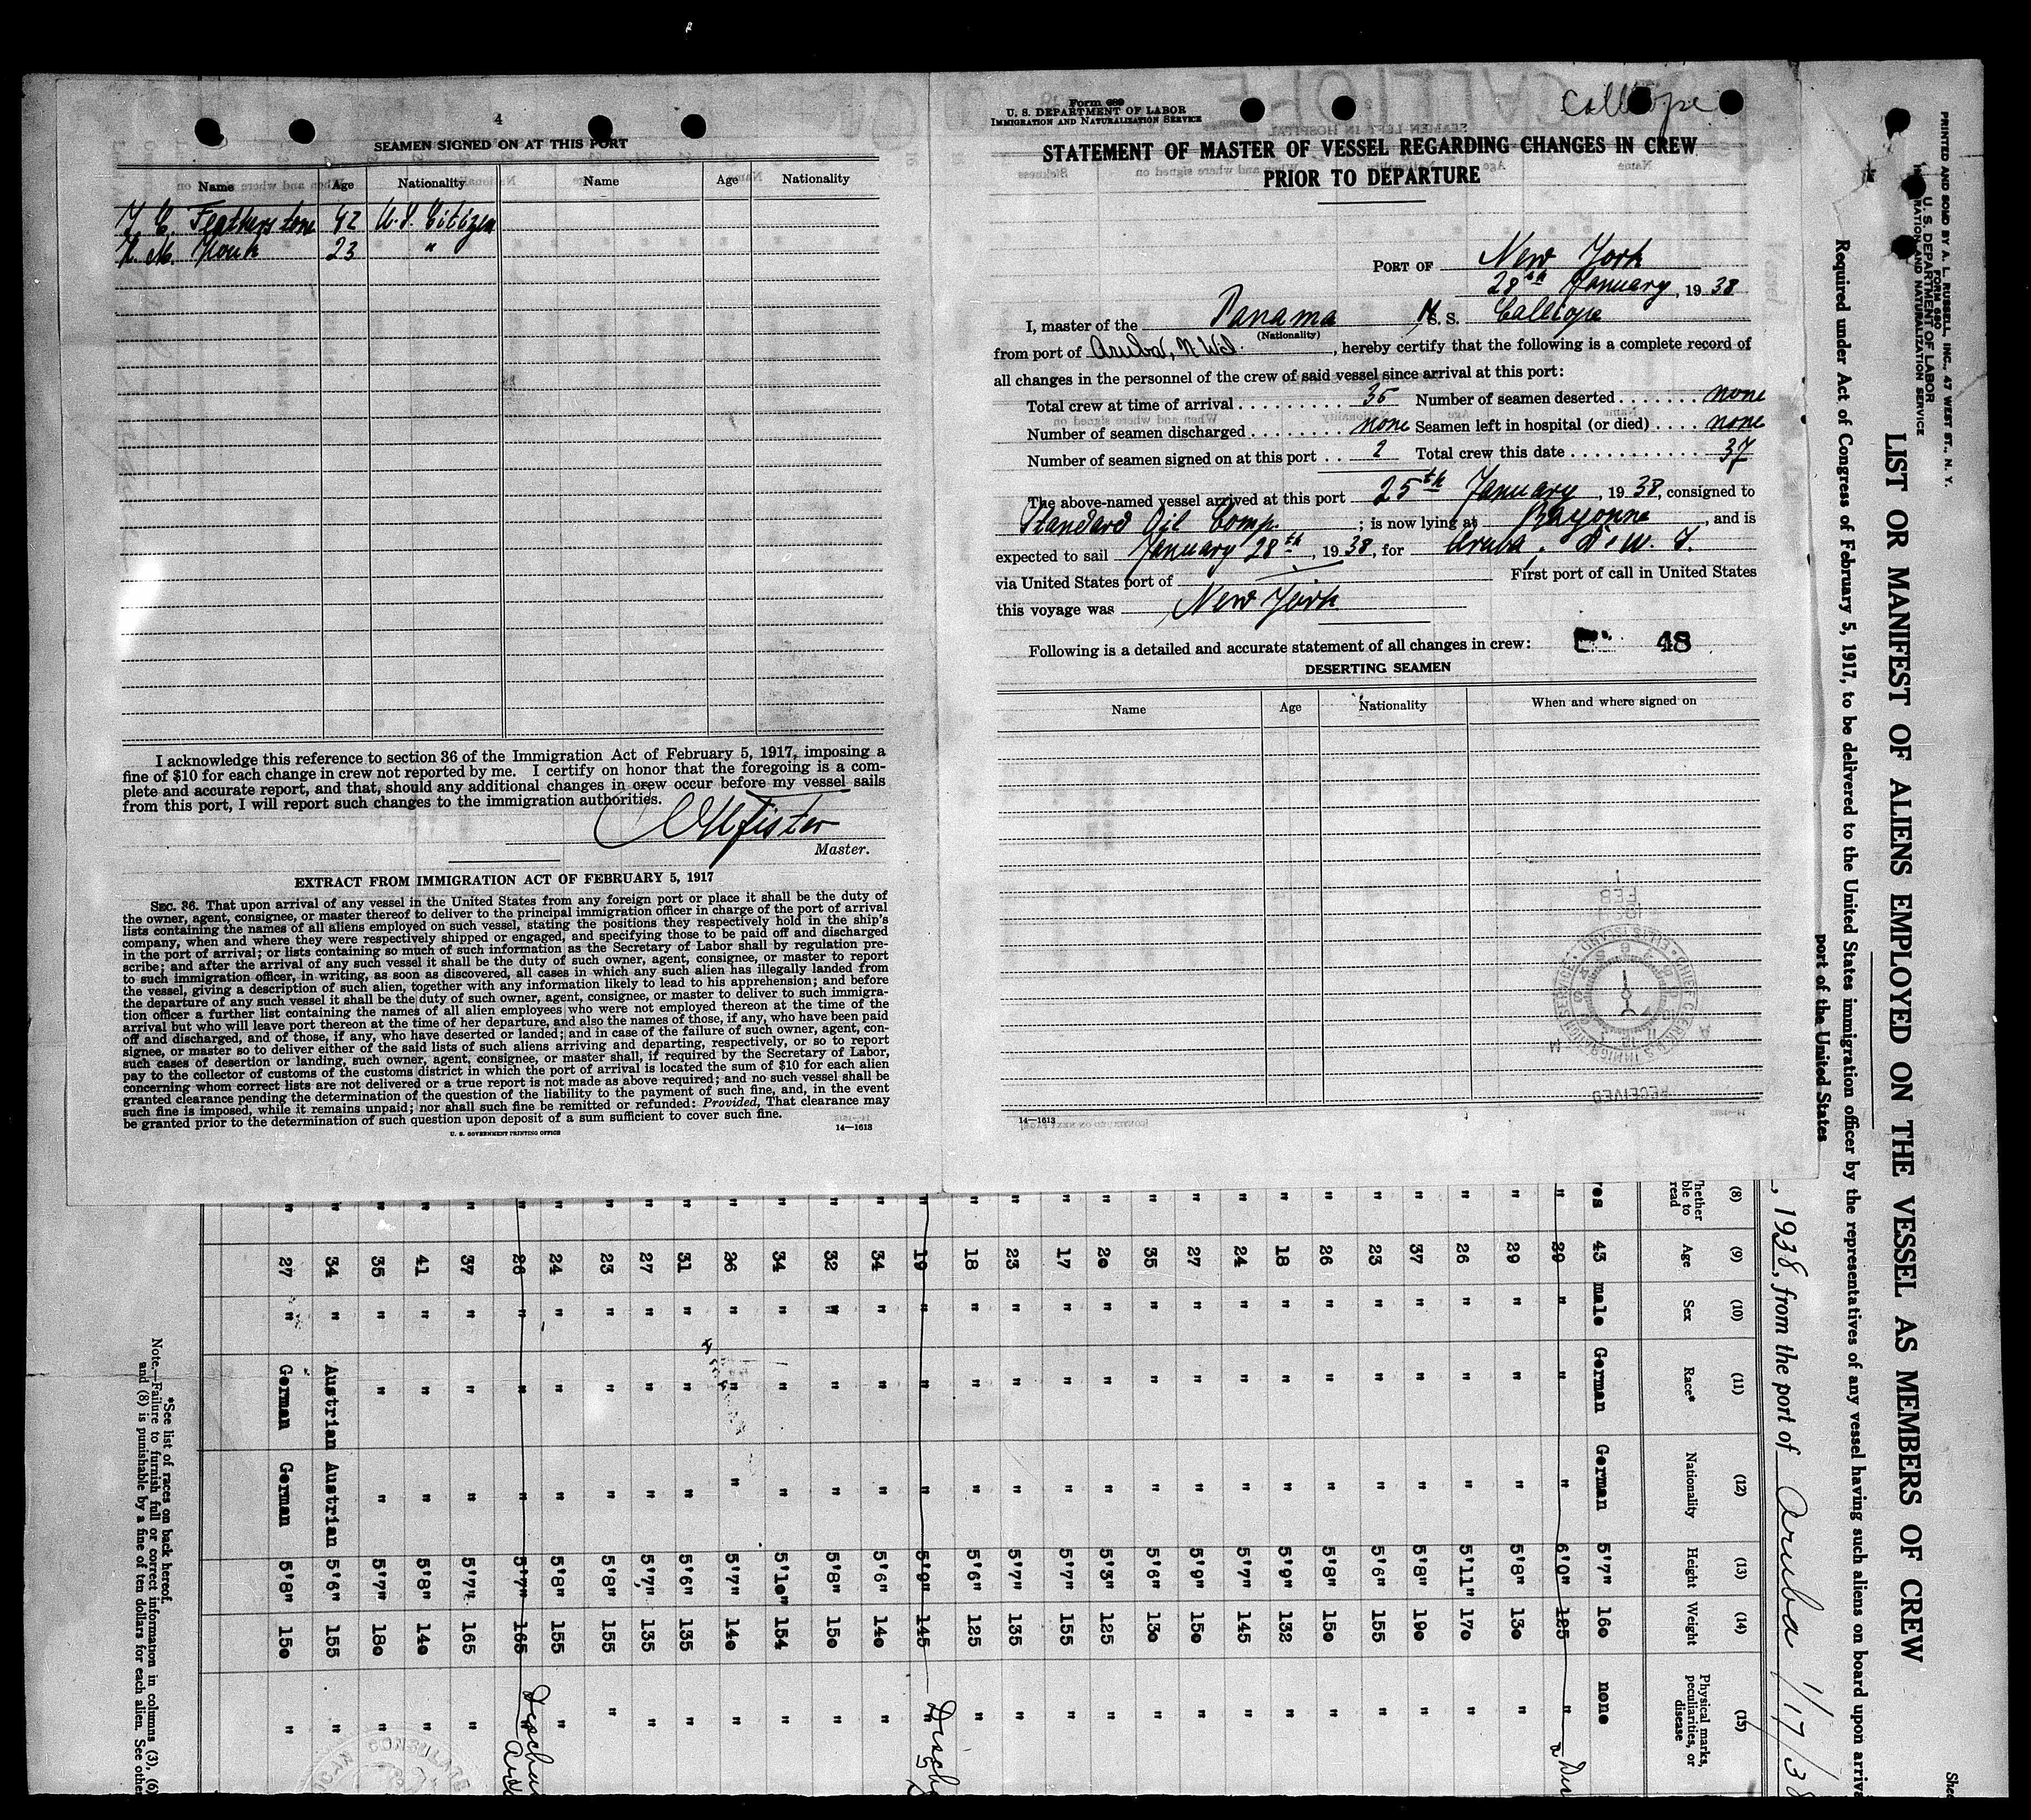 4
SEAMEN SIGNED ON AT THIS PORT
Name Age Nationality Name Age Nationality
Featherstone 42 U.S. Citizen
23 "
I acknowledge this reference to section 36 of the Immigration Act of February 5, 1917, imposing a
fine of $10 for each change in crew not reported by me. I certify on honor that the foregoing is a com-
plete and accurate report, and that, should any additional changes in crew occur before my vessel sails
from this port, I will report such changes to the immigration authorities.
Master.
EXTRACT FROM IMMIGRATION ACT OF FEBRUARY 5, 1917
SEC. 36. That upon arrival of any vessel in the United States from any foreign port or place it shall be the duty of
the owner, agent, consignee, or master thereof to deliver to the principal immigration officer in charge of the port of arrival
lists containing the names of all aliens employed on such vessel, stating the positions they respectively hold in the ship's
company, when and where they were respectively shipped or engaged, and specifying those to be paid off and discharged
in the port of arrival; or lists containing so much of such information as the Secretary of Labor shall by regulation pre-
scribe; and after the arrival of any such vessel it shall be the duty of such owner, agent, consignee, or master to report
to such immigration officer, in writing, as soon as discovered, all cases in which any such alien has illegally landed from
the vessel, giving a description of such alien, together with any information likely to lead to his apprehension; and before
the departure of any such vessel it shall be the duty of such owner, agent, consignee, or master to deliver to such immigra-
tion officer a further list containing the names of all alien employees who were not employed thereon at the time of the
arrival but who will leave port thereon at the time of her departure, and also the names of those, if any, who have been paid
off and discharged, and of those, if any, who have deserted or landed; and in case of the failure of such owner, agent, con-
signee, or master so to deliver either of the said lists of such aliens arriving and departing, respectively, or so to report
such cases of desertion or landing, such owner, agent, consignee, or master shall, if required by the Secretary of Labor,
pay to the collector of customs of the customs district in which the port of arrival is located the sum of $10 for each alien
concerning whom correct lists are not delivered or a true report is not made as above required; and no such vessel shall be
granted clearance pending the determination of the question of the liability to the payment of such fine, and, in the event
such fine is imposed, while it remains unpaid; nor shall such fine be remitted or refunded: Provided, That clearance may
be granted prior to the determination of such question upon deposit of a sum sufficient to cover such fine.
U. S. GOVERNMENT PRINTING OFFICE 14—1613
Form 689
U. S. DEPARTMENT OF LABOR
IMMIGRATION AND NATURALIZATION SERVICE
Calliope
STATEMENT OF MASTER OF VESSEL REGARDING CHANGES IN CREW
PRIOR TO DEPARTURE
PORT OF New York
28th January, 1938
I, master of the Panama M S. S. Calliope
(Nationality)
from port of Aruba, N.W.I., hereby certify that the following is a complete record of
all changes in the personnel of the crew of said vessel since arrival at this port:
Total crew at time of arrival 35 Number of seamen deserted none
Number of seamen discharged none Seamen left in hospital (or died) none
Number of seamen signed on at this port 2 Total crew this date 37
The above-named vessel arrived at this port 25th January, 1938, consigned to
Standard Oil Comp. ; is now lying at Bayonne, and is
expected to sail January 28th, 1938, for Aruba, D.W.I.
via United States port of First port of call in United States
this voyage was New York
Following is a detailed and accurate statement of all changes in crew: 48
DESERTING SEAMEN
Name Age Nationality When and where signed on
14—1613
RECEIVED
FEB
PRINTED AND SOLD BY A. L. RUSSELL, INC., 47 WEST ST., N. Y.
FORM 680
U. S. DEPARTMENT OF LABOR
IMMIGRATION AND NATURALIZATION SERVICE
LIST OR MANIFEST OF ALIENS EMPLOYED ON THE VESSEL AS MEMBERS OF CREW
Required under Act of Congress of February 5, 1917, to be delivered to the United States immigration officer by the representatives of any vessel having such aliens on board upon arriva
port of the United States
, 1938, from the port of Aruba 1/17/38
(8) (9) (10) (11) (12) (13) (14) (15)
hether ble to read Age Sex Race* Nationality Height Weight Physical marks, peculiarities, or disease
yes 43 male German German 5'7" 160 none
" 29 " " " 6'0" 125 "
" 29 " " " 5'8" 130 "
" 26 " " " 5'11" 170 "
" 37 " " " 5'8" 190 "
" 23 " " " 5'6" 155 "
" 26 " " " 5'8" 150 "
" 18 " " " 5'9" 132 "
" 24 " " " 5'7" 145 "
" 27 " " " 5'9" 150 "
" 35 " " " 5'6" 130 "
" 20 " " " 5'3" 125 "
" 17 " " " 5'7" 155 "
" 23 " " " 5'7" 135 "
" 18 " " " 5'6" 125 "
" 19 " " " 5'9" 145 " Disch
" 34 " " " 5'6" 140 "
" 32 " " " 5'8" 150 "
" 34 " " " 5'10" 154 "
" 26 " " " 5'7" 140 "
" 31 " " " 5'6" 135 "
" 27 " " " 5'7" 135 "
" 23 " " " 5'8" 155 "
" 24 " " " 5'8" 155 "
" 26 " " " 5'7" 165 "
" 37 " " " 5'7" 165 "
" 41 " " " 5'8" 140 "
" 35 " " " 5'7" 180 "
" 34 " Austrian Austrian 5'6" 155 "
" 27 " German German 5'8" 150 "
CONSULATE
*See list of races on back hereof.
Note.—Failure to furnish full or correct information in columns (3), (6)
and (8) is punishable by a fine of ten dollars for each alien. See othe